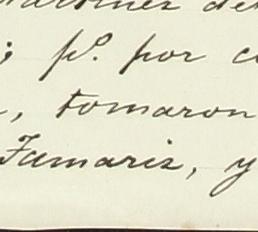 ; p.º por c
, tomaron
Tamariz, y